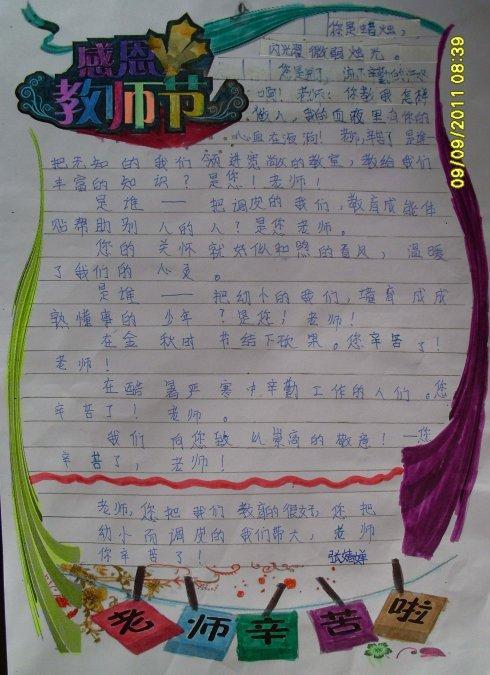 感恩
教师节
你是蜡烛，
闪光翟微弱烛光。
您是 ， 下辛勤的汗水
啊！老师：你教我怎样
做人，我的血液里有你的
心血在 ！老师，辛苦了是谁一
把无知的我们领进宽敞的教室，教给我们
丰富的知识？是您！老师！
是谁——把调皮的我们，教育成能体
贴帮助别人的人？是您老师。
您的关怀就好似和煦的春风，温暖
了我们的心灵。
是谁——把幼小的我们，培育成成
熟懂事的少年？是您！老师！
在金秋时节结下硕果。您辛苦了！
老师！
在酷暑严寒中辛勤工作的人们。您
辛苦了！老师。
我们向您致以崇高的敬意！一您
辛苦了，老师！
老师，您把我们教育的很好，您把
幼小而调皮的我们带大，老师
你辛苦了！
老师辛苦啦
09/09/2011 08:39